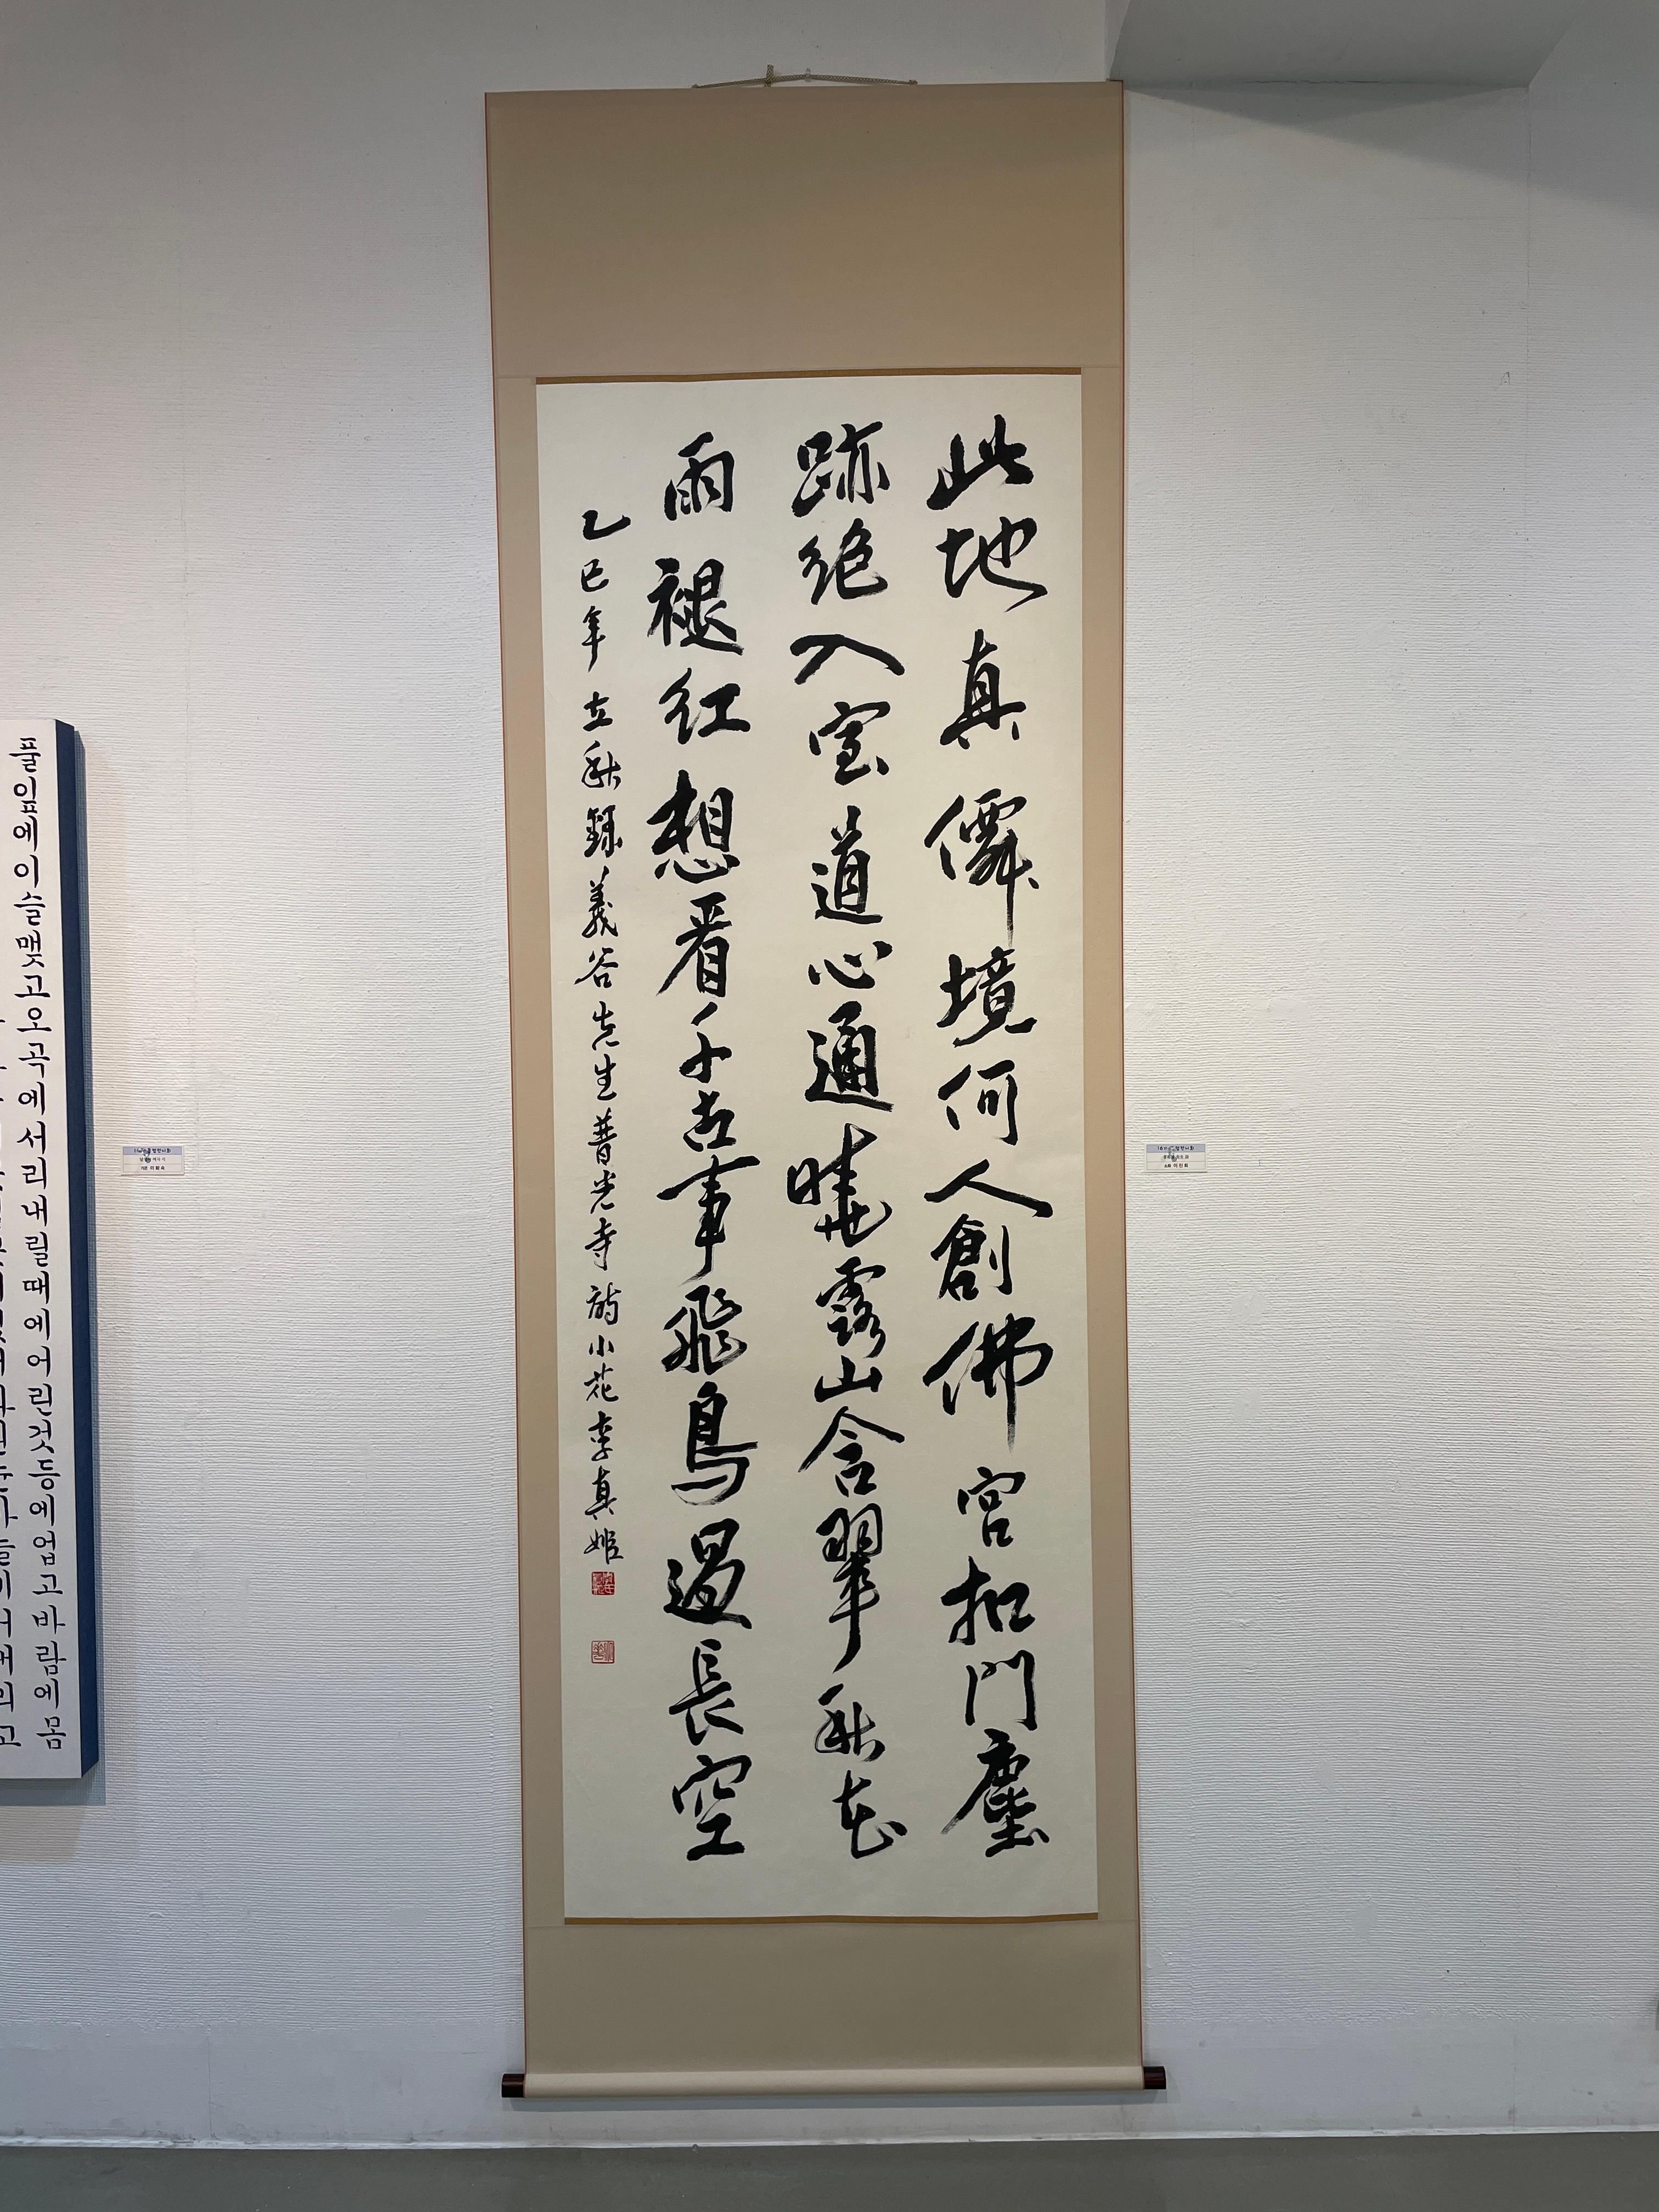 此地真僊境何人創佛宮扣門塵
跡絶入室道心通曉露山含翠秋花
雨褪紅想看千古事飛鳥過長空
乙巳年 立秋錄義谷先生普光寺詩小花李真姬
풀잎에이슬맺고오곡에서리내릴때에어린것등에업고바람에몸